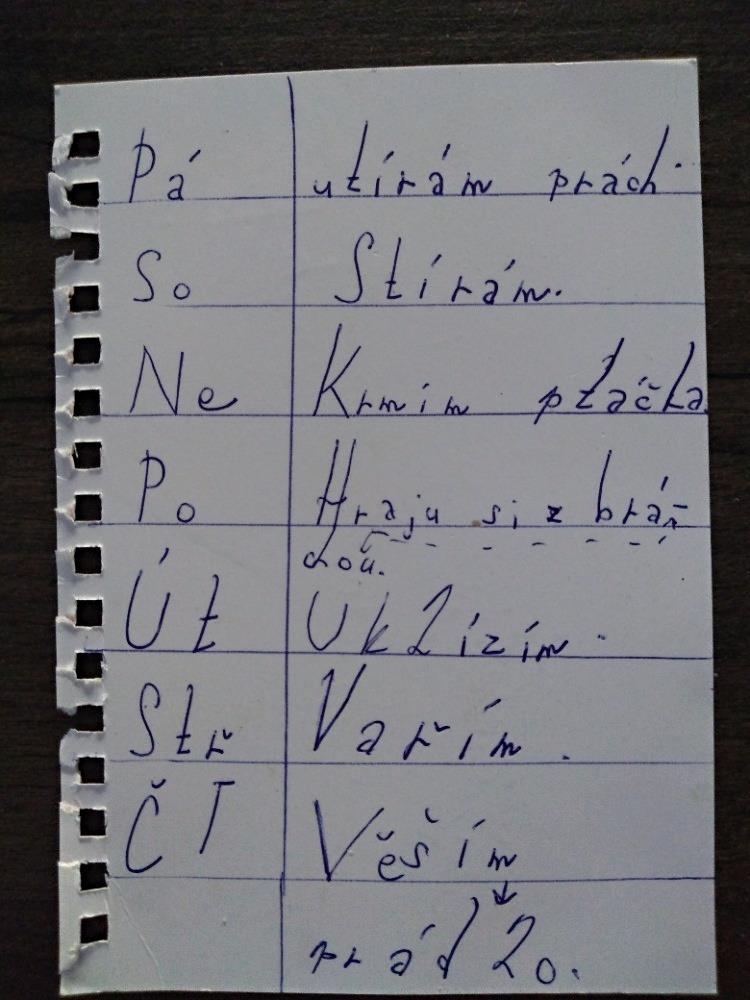 Pá utírám prách.
So Stírám.
Ne Krmím ptáčka.
Po Hraju si z brá-
chou.
Út Uklízím.
Stř Vařím.
ČT Věším
prádlo.